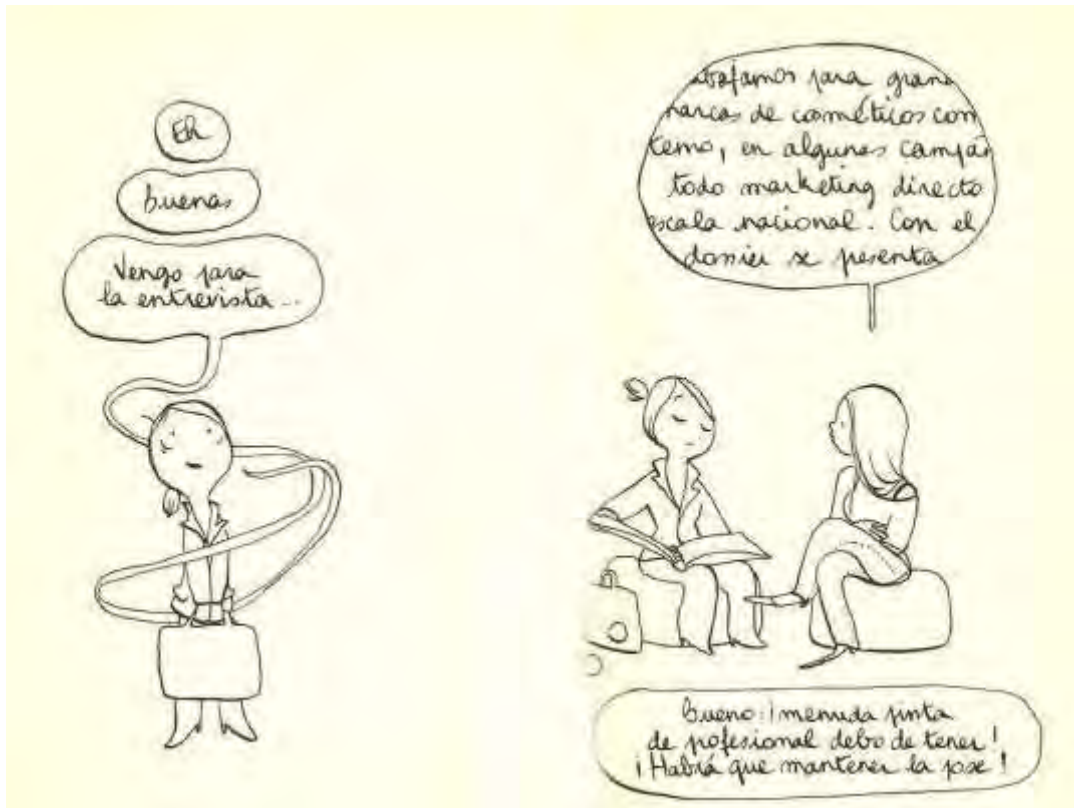 Eh
buenas
Vengo para
la entrevista...
abajamos para gran
marcas de cosméticos con
temo, en algunas campañ
todo marketing directo
escala nacional. Con el
dossier se presenta
Bueno: ¡menuda pinta
de profesional debo de tener!
¡Habrá que mantener la pose!